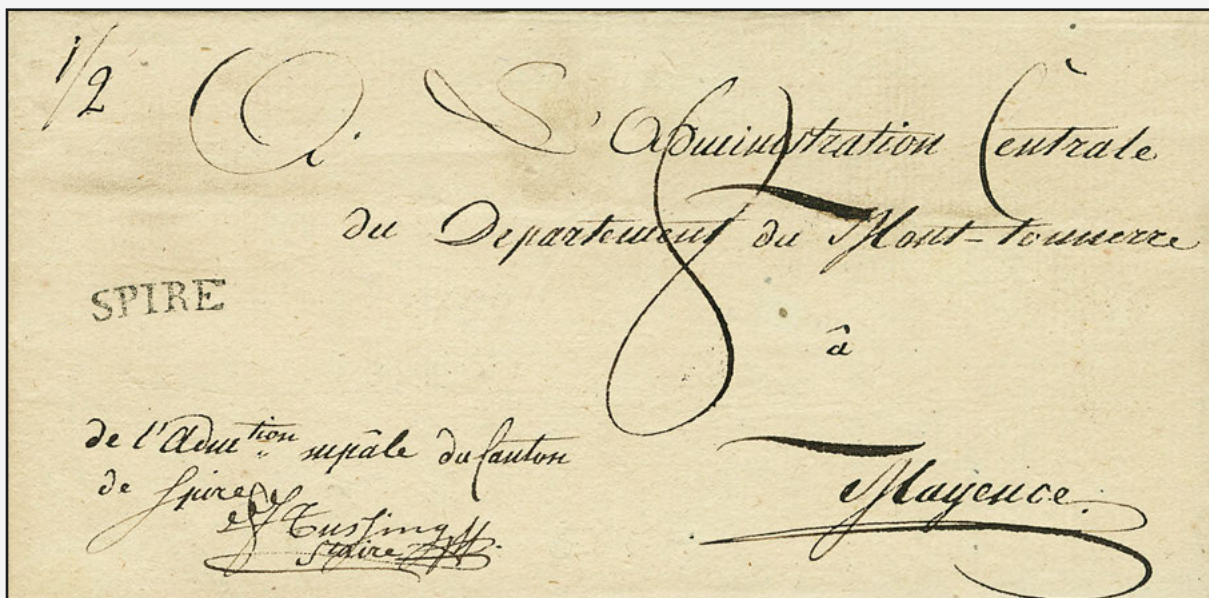 1/2
A L'Administration Centrale
du Departement du Mont-tonnerre
8
SPIRE
à
de l'Adm.tion mpâle du Canton
de Spire
Mayence.